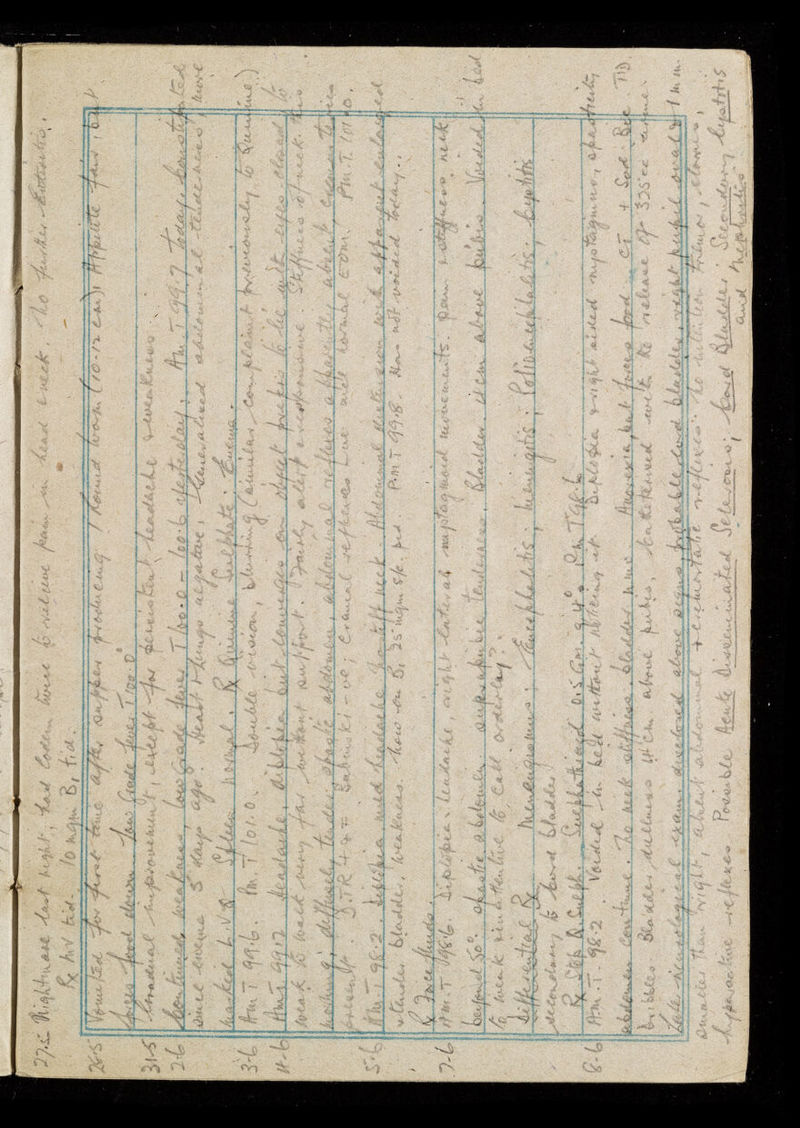 27.5 Nightmare last night, had Codein twice to relieve pain in head & neck. No further
Rx MV tid. 10 mgm B1 tid.
28.5 Vomited for first time after supper producing 1 Round worm (10-12 cm). Appetite fair, but
forces food down. Low Grade fever T 100.0°
31.5 Gradual improvement, except for persistent headache & weakness.
2.6 Continued weakness, low Grade fever T 100.0 - 100.6 yesterday. Am. T 99.7 today. Constipated
since enema 5 days ago. Heart & lungs negative. Generalised abdominal tenderness, more
marked L.V.Q. Spleen normal. Rx Quinine Sulphate. Enema.
3.6 Am T 99.6. Pm. T 101.0. Double vision, blurring (similar complaint previously to Quinine.)
4.6 Am T 99.2 headache, diplopia but converges on object prefers to lie with eyes closed to
weak to walk very far without support. Fairly alert & responsive. Stiffness of neck. this
morning; diffusely tender, spastic abdomen, abdominal reflexes apparently absent,
present. D.T.R. +++ Babinski -ve; Cranial reflexes +ve and normal EOM. Pm. T. 101.0.
5.6 Am T 98.2. Diplopia mild headache & stiff neck. Abdominal distension with apparent enlarged
& tender bladder, weakness. Now on B1 25 mgm sk. prd. P.m. T 99.8. Has not voided today..
Rx Force fluids.
7.6 A.m. T. 98.6. Diplopia, headache, right lateral nystagmoid movements. pain & stiffness neck
beyond 50° spastic abdomen suprapubic tenderness. Bladder 11 cm above pubis. Voided in bed
to weak & inattentive to call orderly?
Differential Rx Meningismus; Encephalitis; Meningitis; Polioencephalitis; Cystitis
secondary to cord bladder.
Rx Stop Q Sulph. Sulphathiazol 0.5 Gm. q 4°. P.m. T 98.6
8.6 A.m. T. 98.2 Voided in bed without noticing it. Diplopia & right sided nystagmus, spasticity
abdomen continue. No neck stiffness, bladder same. Anorexia but forces food. CT + Sod. Bic TID
Dribbles Bladder dullness 14 cm above pubes, Catheterised with the release of 325 cc urine.
Late neurological exam. disclosed above signs probable cord bladder, right pupil oval & 1 mm
smaller than right, absent abdominal & cremastatic reflexes. No intention tremor, clonus,
hyperactive reflexes. Possible Acute Disseminated Sclerosis; Cord Bladder; Secondary Cystitis
and Nephritis